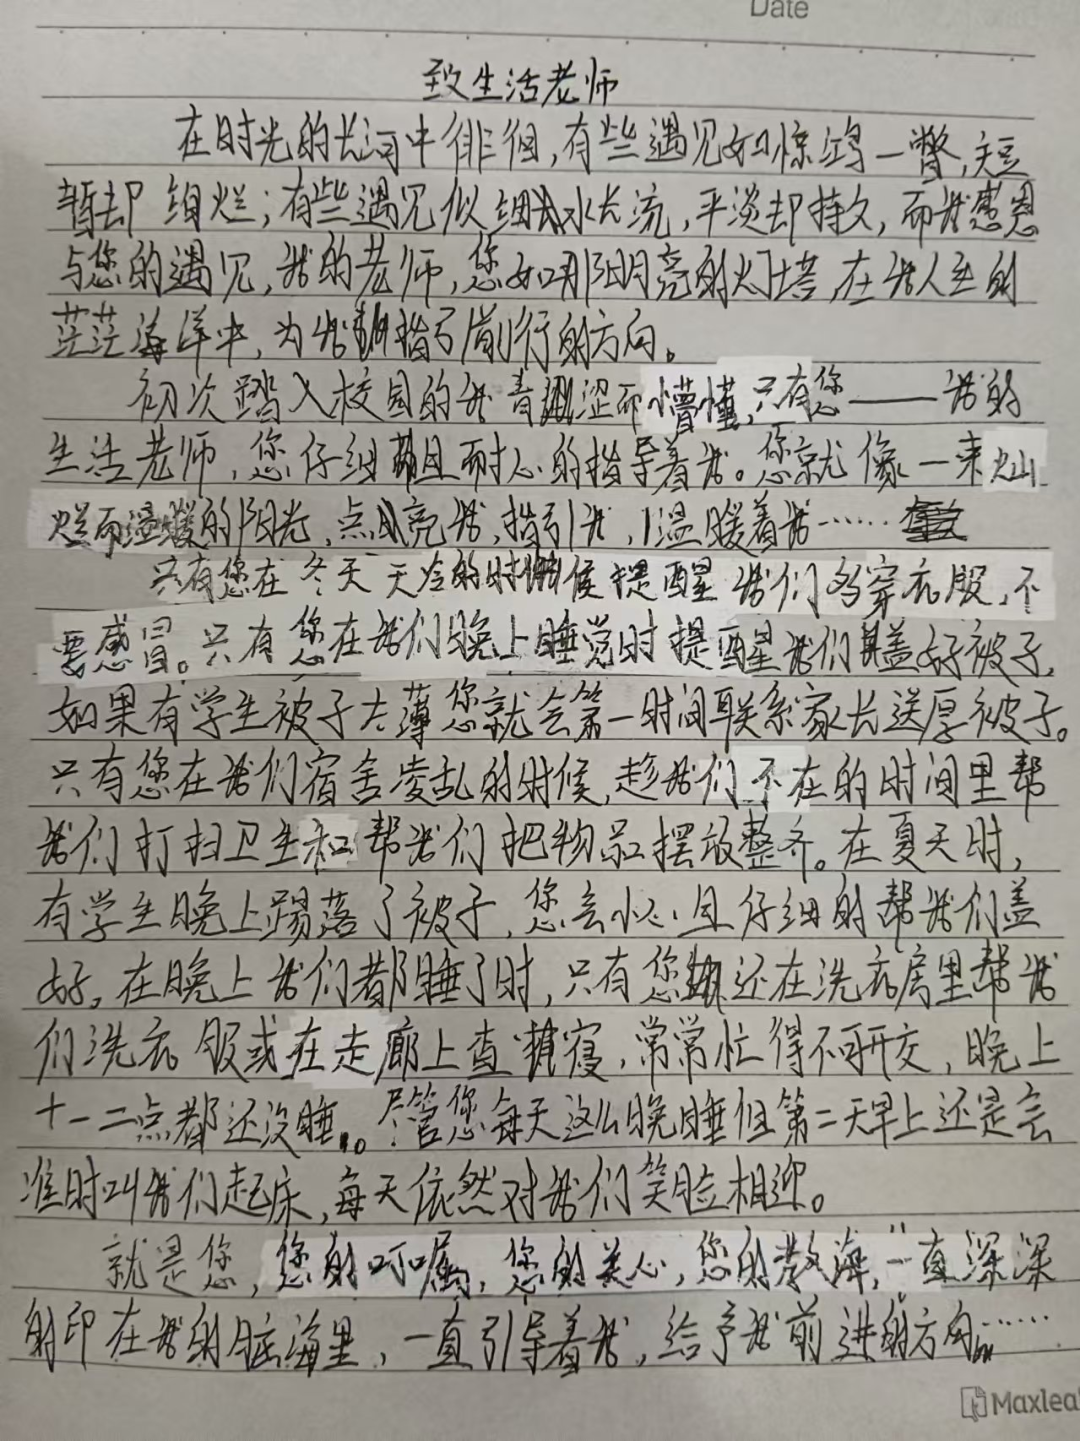 Date
致生活老师
在时光的长河中徘徊,有些遇见如惊鸿一瞥,短
暂却绚烂;有些遇见似细水长流,平淡却持久,而我感恩
与您的遇见,我的老师,您如那阳明亮的灯塔,在我人生的
茫茫海洋中,为我指引前行的方向。
初次踏入校园的我青涩而懵懂,只有您——我的
生活老师,您仔细且耐心的指导着我。您就像一束灿
烂而温暖的阳光,点亮我,指引我,温暖着我……
只有您在冬天天冷的时候提醒我们多穿衣服,不
要感冒。只有您在我们晚上睡觉时提醒我们盖好被子,
如果有学生被子太薄您就会第一时间联系家长送厚被子。
只有您在我们宿舍凌乱的时候,趁我们不在的时间里帮
我们打扫卫生和帮我们把物品摆放整齐。在夏天时,
有学生晚上踢落了被子,您会小心且仔细的帮我们盖
好,在晚上我们都睡了时,只有您还在洗衣房里帮我
们洗衣服或在走廊上查寝,常常忙得不可开交,晚上
十一二点都还没睡。尽管您每天这么晚睡但第二天早上还是会
准时叫我们起床,每天依然对我们笑脸相迎。
就是您,您的叮嘱,您的关心,您的教诲,一直深深
的印在我的脑海里,一直引导着我,给予我前进的方向……
Maxlea